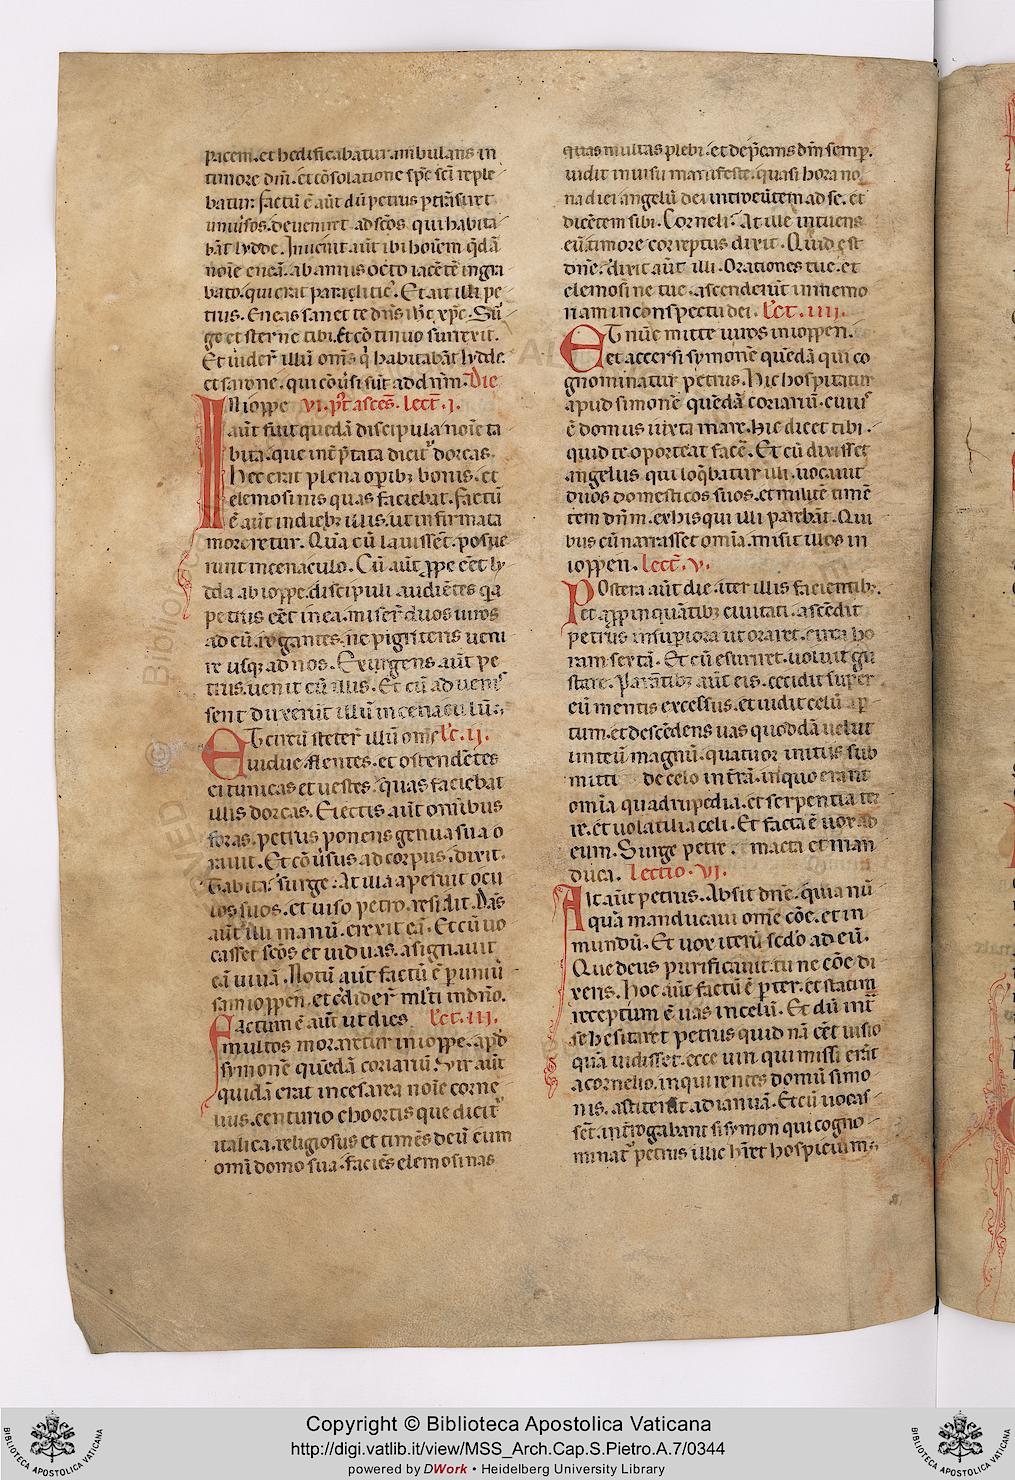 pacem. et hedificabatur. ambulans in
timore dn̄i. et cōsolatione sp̄s sc̄i reple
batur. factū ē aūt dū petrus ptrāsiret
uniuersos. deueniret ad sc̄os. qui habita
bāt lydde. Inuenit aūt ibi hoīem q̄dā
noīe eneā. ab annis octo iacētē in gra
bato. qui erat paraliticꝰ. Et ait illi pe
trus. Eneas sanet te dn̄s ih̄c xp̄c. Sur
ge et sterne tibi. Et cōtinuo surrexit.
Et uider̄t illū om̄s q̇ habitabāt lydde.
et sarone. qui cōu̓si sūt ad dn̄m. Die
IN ioppe vi. p̄t ascēs. lect̄. j.
aūt fuit quedā discipula noīe ta
bita. que int̓p̄tata dicitᷣ dorcas.
Hec erat plena opibꝫ bonis. et
elemosinis quas faciebat. factū
ē aūt in diebꝫ illis. ut infirmata
moreretur. Quā cū lauissēt. posue
runt in cenaculo. Cū aūt ꝓpe eēt ly
dda ab ioppe. discipuli audiētes qa
petrus eēt in ea. miser̄t duos uiros
ad eū. rogantes. ne pigriteris ueni
re usqꝫ ad nos. Exurgens aūt pe
trus. uenit cū illis. Et cū adueniſ
sent duxerūt illū in cenaculū.
ET circū steter̄t illū om̄s lc̄. ij.
uidue flentes. et ostendētes
ei tunicas et uestes. quas faciebat
illis dorcas. Eiectis aūt omībus
foras. petrus ponens genua sua o
rauit. Et cōu̓sus ad corpus. dixit.
Tabita. surge. At illa aperuit ocu
los suos. et uiso petro. resedit. Dās
aūt illi manū. erexit eā. Et cū uo
casset sc̄os et uiduas. asignauit
eā uiuā. Notū aūt factū ē p uniu̓
sam ioppen. et c̓dider̄t ml̓ti in dn̄o.
Factum ē aūt ut dies lc̄t. iij.
multos moraretur in ioppe. apd̓
symonē quēdā coriariū. Vir aūt
quidā erat in cesarea noīe corne
lius. centurio choortis que dicitᷣ
italica. religiosus et timēs deū cum
omī domo sua. faciēs elemosinas
quas multas plebi. et dep̄cans dm̄ semp.
uidit in uisu manifeste. quasi hora no
na diei angelū dei introeūtem ad se. et
dicētem sibi. Corneli. At ille intuens
eū. timore correptus dixit. Quid est
dn̄e. dixit aūt illi. Orationes tue. et
elemosine tue. ascenderūt in memo
riam in conspectu dei. lc̄t. iiij.
ET nūc mitte uiros in ioppen.
et accersi symonē quēdā qui co
gnominatur petrus. Hic hospitatur
apud simonē quēdā coriariū. cuius
ē domus iuxta mare. hic dicet tibi.
quid te oporteat facē. Et cū dixisset
angelus qui loq̄batur illi. uocauit
duos domesticos suos. et militē timē
tem dn̄m. ex his qui illi parebāt. Qui
bus cū narrasset omīa. misit illos in
ioppen. lect̄. v.
Postera aūt die. iter illis facientibꝫ.
et appinquātibꝫ ciuitati. ascēdit
petrus in supiora ut oraret. circa ho
ram sextā. Et cū esuriret. uoluit gu
stare. Parātibꝫ aūt eis. cecidit super
eū mentis excessus. et uidit celū ap
tum. et descēdens uas quoddā uelut
linteū magnū. quatuor initiis sub
mitti de celo in t̓rā. in quo erant
omīa quadrupedia. et serpentia ter
re. et uolatilia celi. Et facta ē uox ad
eum. Surge petre. macta et man
duca. Lectio. VI.
Ait aūt petrus. Absit dn̄e. quia nū
quā manducaui omē cōe. et in
mundū. Et uox iterū scd̓o ad eū.
Que deus purificauit. tu ne cōe di
xeris. Hoc aūt factū ē p ter. et statim
receptum ē uas in celū. Et dū int̄
se hesitaret petrus quid nā eēt uisio
quā uidisset. ecce uiri qui missi erāt
a cornelio. inquirentes domū simo
nis. astiterāt ad ianuā. Et cū uocas
sēt. int̓rogabant si symon qui cogno
minatᷣ petrus illic h̄ret hospicium.
Copyright © Biblioteca Apostolica Vaticana
http://digi.vatlib.it/view/MSS_Arch.Cap.S.Pietro.A.7/0344
powered by DWork • Heidelberg University Library
BIBLIOTECA APOSTOLICA VATICANA
BIBLIOTECA APOSTOLICA VATICANA